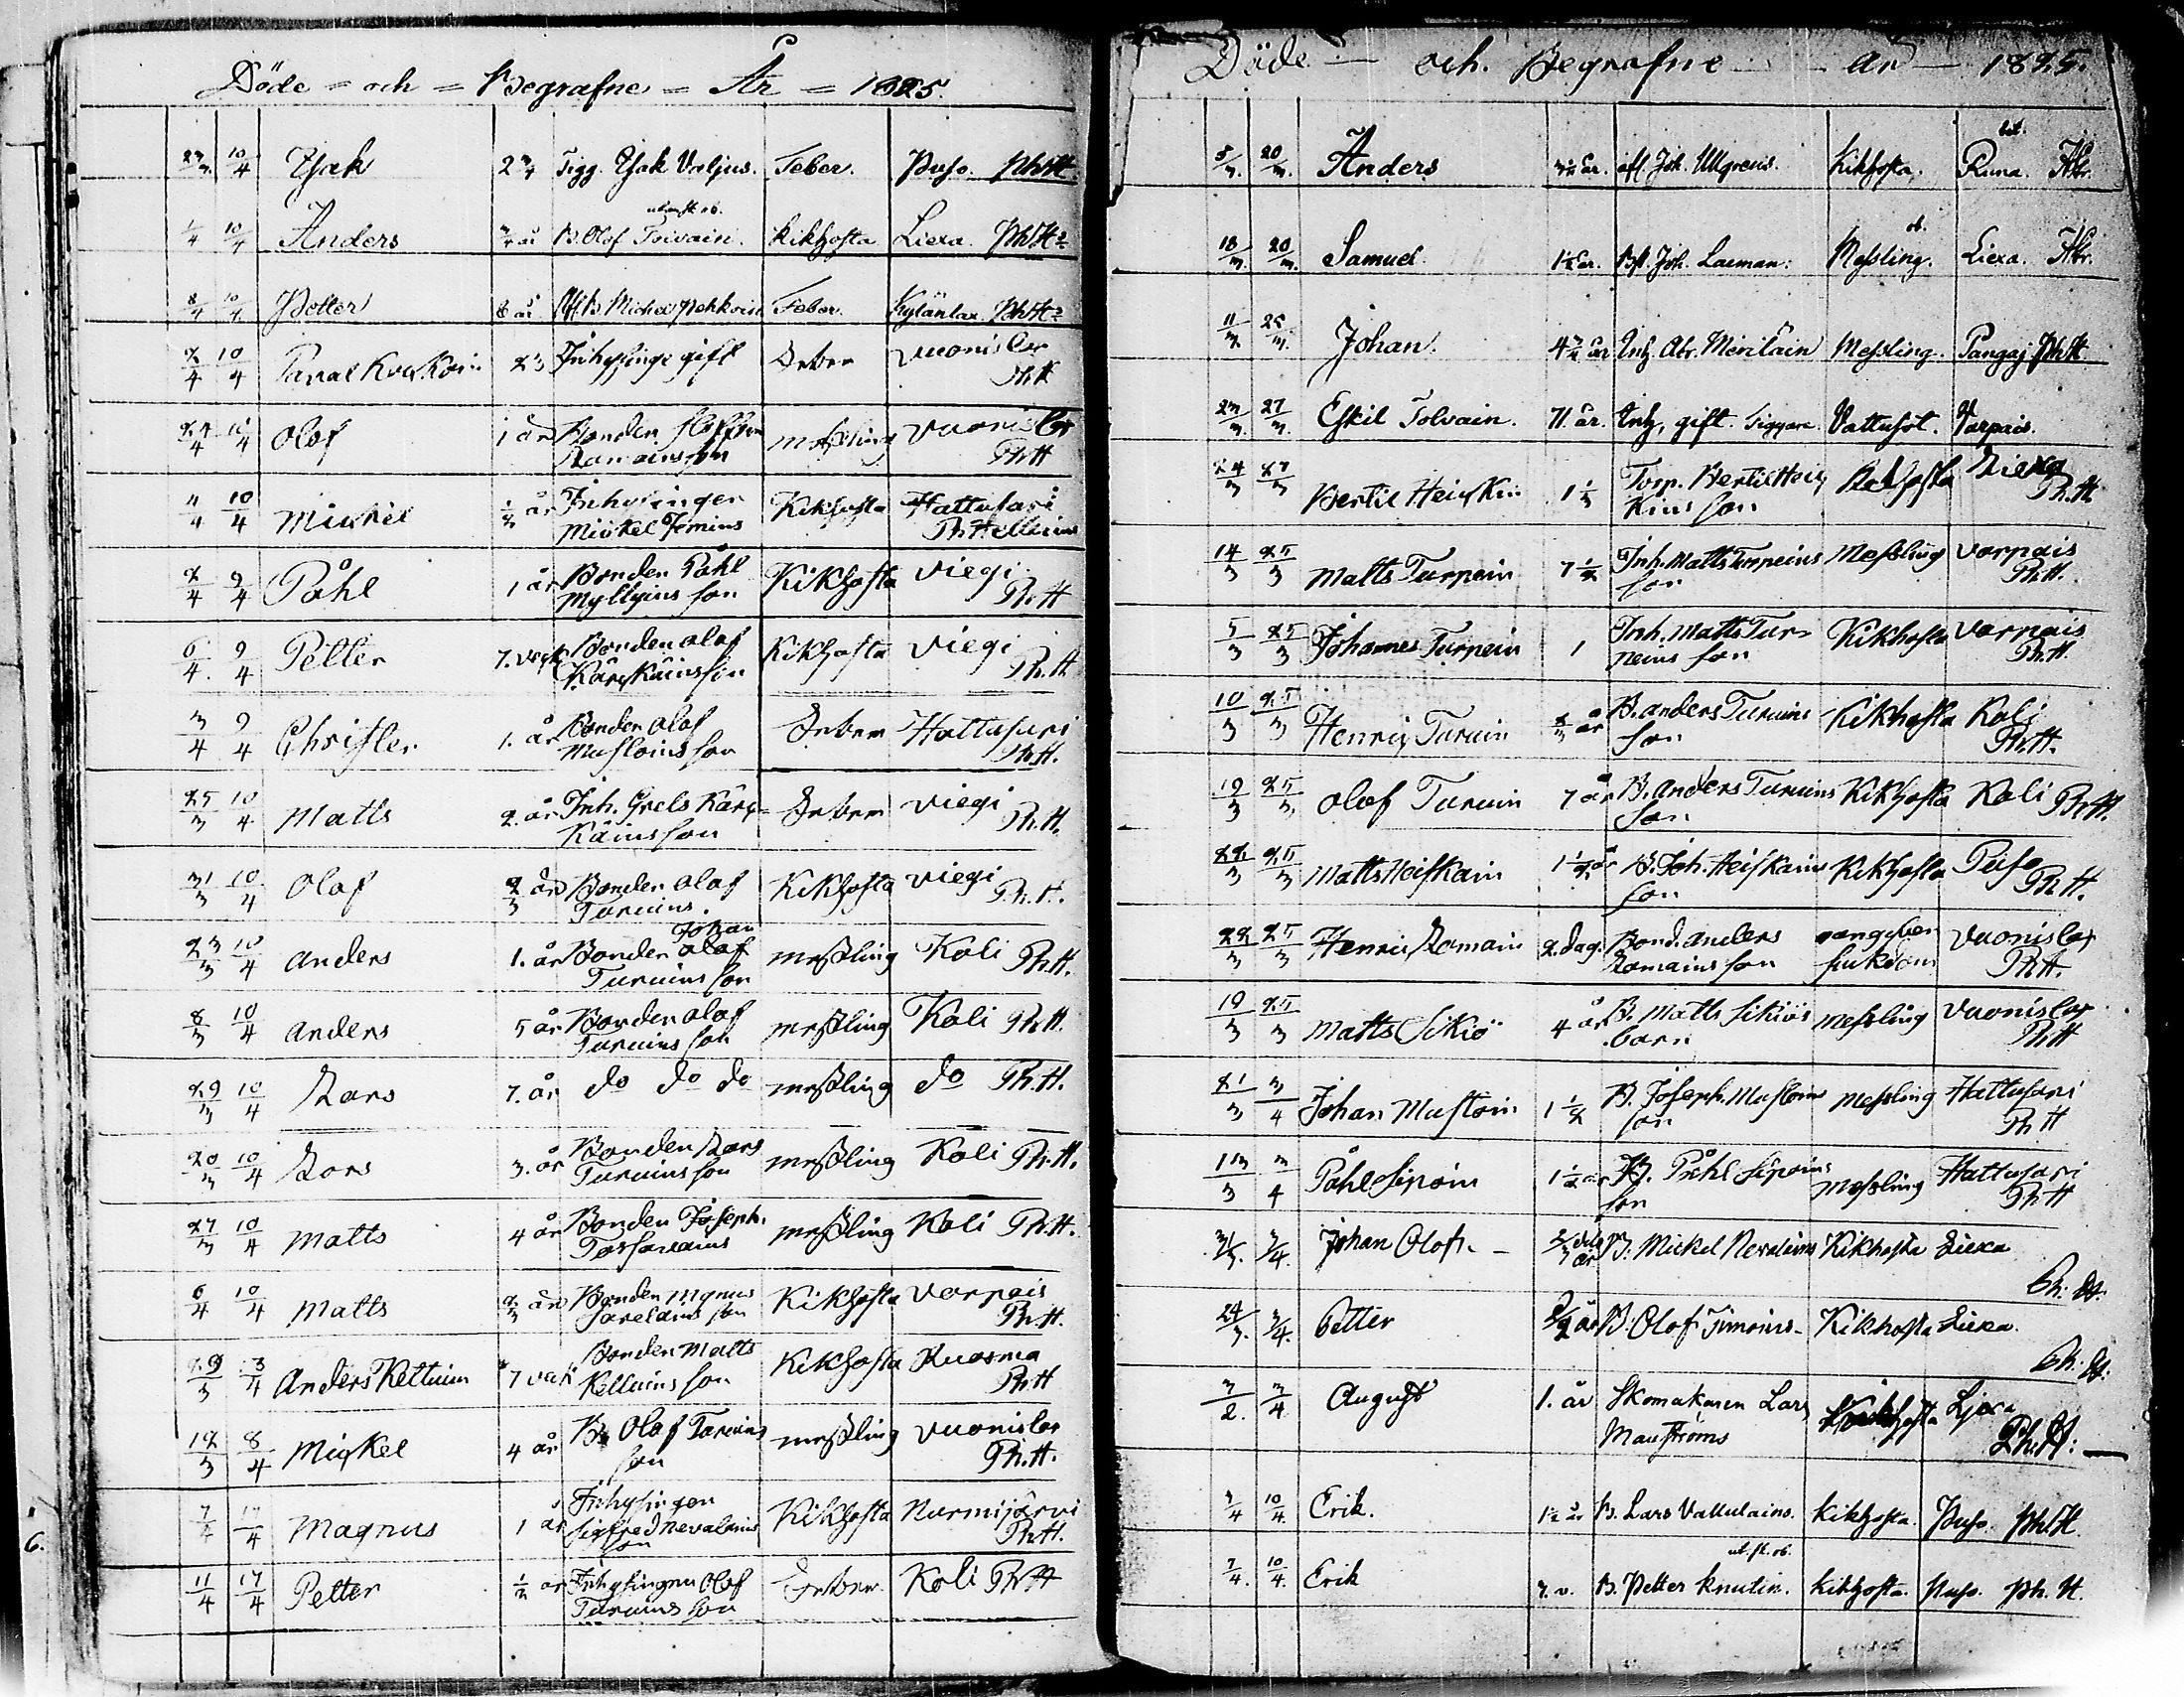 Döde = och = Begrafne = År = 1825.
10/4 Isak 2 Tigg. Isak Valjus. Feber. Puso. Ph:H.
1/4 10/4 Anders B. Olof Toivain. kikhosta Liexa. Ph:H:
8/4 10/4 Petter 8 år Feber. Kylänlax. Ph:H:
2/4 10/4 Inhysinge gift Feber Vuonislax
Ph.H
24/4 10/4 Olof 1 år Bonden
Ramainsson messling Vuonislax
Ph H
11/4 10/4 Mickel 1/2 år Inhysingen
Mickel Kikhosta Hattusari
Ph.H
2/4 9/4 Påhl 1 år Bonden Påhl
Myllyins son Kikhosta Viegi
Ph.H
6/4 9/4 Petter 7. veck Bonden Olof
Kärckäins son Kikhosta Viegi
Ph.H
3/4 9/4 Christer 1. år Bonden Olof
Mustoins son Feber Hattusari
Ph.H.
25/3 10/4 Matts 2. år Inh. Grels Kärc-
käins son Feber Viegi
Ph.H.
31/3 10/4 Olof 2/3 år Bonden Olof
Turuins. Kikhosta Viegi
Ph.H.
23/3 10/4 Anders 1. år Bonden Johan
Turuins son messling Koli Ph.H.
8/3 10/4 Anders 5 år Bonden Olof
Turuins son messling Koli Ph.H.
29/3 10/4 Lars 7. år do do do messling do Ph.H.
20/3 10/4 Lars 3. år Bonden Lars
Turuins son messling Koli Ph.H.
27/3 10/4 Matts 4 år Bonden Joseph
messling Koli Ph.H.
6/4 10/4 Matts 2/3 år Bonden Magnus
son Kikhosta Varpais
Ph.H.
29/3 3/4 Anders Kettuin 7 veck Bonden Matts
Kettuins son Kikhosta Kuosma
Ph.H
12/3 8/4 Mickel 4 år B. Olof Turuins
son messling Vuonislax
Ph.H.
7/4 17/4 Magnus 1 år Inhysingen
Sigfred Nevalains
son Kikhosta Nurmijärvi
Ph.H.
11/4 17/4 Petter 1/2 år Inhysingen Olof
Turuins son Feber Koli Ph H
6.
Döde — och. Begrafne — år — 1825.
5/3. 20/3. Anders år. afl. Joh. Ullgrens. Kikhosta. Runa.
18/3. 20/3. Samuel 1 1/2 år. Joh. Laeman: Messling. Liexa.
11/3. 25/3. Johan. år Inh. Abr. Meriläin Messling. Pangaj. Ph:H.
23/3. 27/3. Eskil Tolvain. 71. år. Inh, gift. Tiggare. Vattusot. Varpais.
24/3 27/3 Bertil Heickin 1 1/2 Torp. Bertil Heic
kins son Kikhosta Liexa
Ph.H
14/3 25/3 Matts Turpein 7 1/2 Inh. Matts Turpeins
son Messling Varpais
Ph.H.
5/3 25/3 Johannes Turpein 1 Inh. Matts Tur-
peins son Kikhosta Varpais
Ph.H.
10/3 25/3 Henric Turuin år B. Anders Turuins
son Kikhosta Koli
Ph.H.
19/3 25/3 Olof Turuin 7 år B. Anders Turuins
son Kikhosta Koli Ph.H.
22/3 25/3 Matts Heiskain 1 1/2 år B. Joh. Heiskains
son Kikhosta Puso
Ph.H.
22/3 25/3 Henric Ramain 2. dag. Bond. Anders
Ramains son oangifven
sukdom Vuonislax
Ph.H.
19/3 25/3 Matts Sikiö 4 år B. Matts Sikiös
barn messling Vuonislax
Ph H
21/3 3/4 Johan Mustoin 1 1/2 B. Joseph Mustoins
son messling Hattusari
Ph H
13/3 3/4 Påhl Sipoin 1 1/2 år B. Påhl Sipoins
son messling Hattusari
Ph H
31/3. 3/4. Johan Olof. — år B: Mickel Nevalains Kikhosta Liexa
Ph. H.
24/3. 3/4. Petter år B: Olof Timoins — Kikhosta Liexa.
Ph. H.
3/2. 3/4 August 1. år Skomakaren Lars
Manströms Kikhosta Ljexa
Ph.H: —
3/4 10/4 Erik. 1 1/2 år B. Lars Vallulains. kikhosta. Puso. Ph.H
7/4. 10/4. Erik 3. v. B. Petter Knutin. kikhosta. Puso. Ph. H.